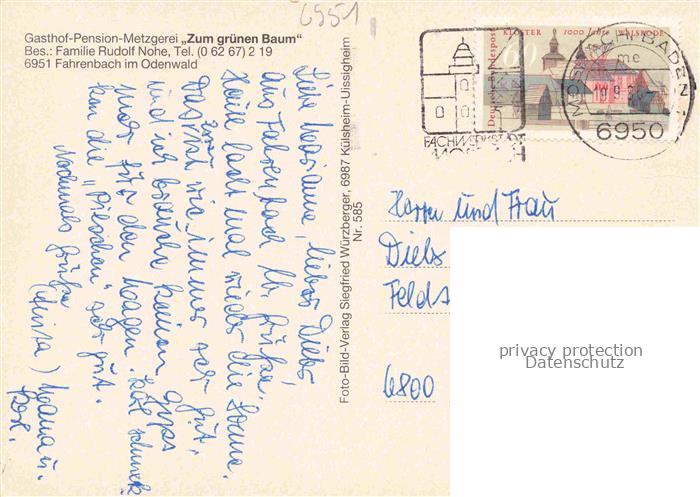 6951
Gasthof-Pension-Metzgerei „Zum grünen Baum“
Bes.: Familie Rudolf Nohe, Tel. (0 62 67) 2 19
6951 Fahrenbach im Odenwald
Liebe Marianne, lieber Dieter
aus Fahrenbach lb. Grüße,
Heute lacht mal wieder die Sonne.
Das ist wie immer sehr gut,
und ich brauche keinen Gips
mehr für den Magen.
die
sehr gut.
Nochmals Grüße
Foto-Bild-Verlag Siegfried Würzberger, 6987 Külsheim-Uissigheim
Nr. 585
KLOSTER 1000 Jahre WALSRODE
60
Deutsche Bundespost
FACHWERKSTADT
MOSBACH
me
6950
Herrn und Frau
Diebs
Felds
6800
privacy protection
Datenschutz